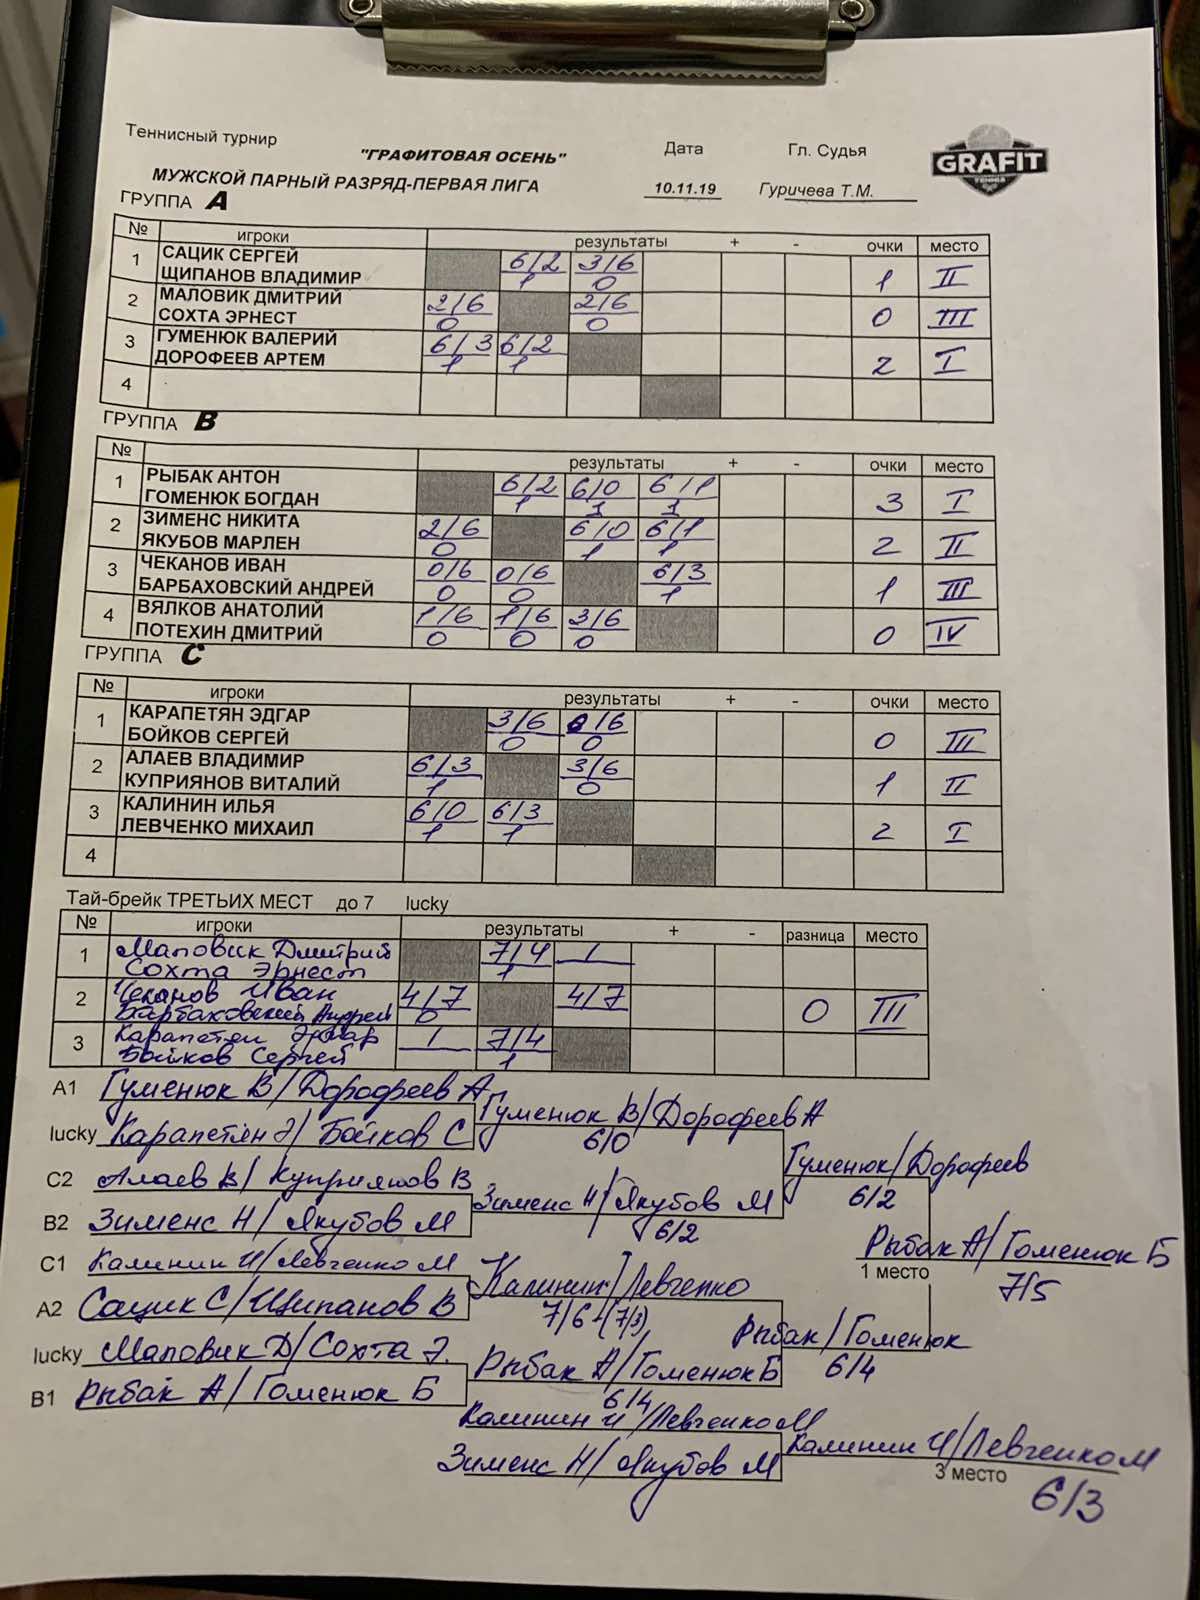 Теннисный турнир
"ГРАФИТОВАЯ ОСЕНЬ"
Дата
Гл. Судья
GRAFIT
МУЖСКОЙ ПАРНЫЙ РАЗРЯД-ПЕРВАЯ ЛИГА
10.11.19
Гуричева Т.М.
ГРУППА A
№ игроки результаты + - очки место
1 САЦИК СЕРГЕЙ 6/2 3/6
ЩИПАНОВ ВЛАДИМИР 1 0 1 II
2 МАЛОВИК ДМИТРИЙ 2/6 2/6
СОХТА ЭРНЕСТ 0 0 0 III
3 ГУМЕНЮК ВАЛЕРИЙ 6/3 6/2
ДОРОФЕЕВ АРТЕМ 1 1 2 I
4
ГРУППА B
№ результаты + - очки место
1 РЫБАК АНТОН 6/2 6/0 6/1
ГОМЕНЮК БОГДАН 1 1 1 3 I
2 ЗИМЕНС НИКИТА 2/6 6/0 6/1
ЯКУБОВ МАРЛЕН 0 1 1 2 II
3 ЧЕКАНОВ ИВАН 0/6 0/6 6/3
БАРБАХОВСКИЙ АНДРЕЙ 0 0 1 1 III
4 ВЯЛКОВ АНАТОЛИЙ 1/6 1/6 3/6
ПОТЕХИН ДМИТРИЙ 0 0 0 0 IV
ГРУППА C
№ игроки результаты + - очки место
1 КАРАПЕТЯН ЭДГАР 3/6 0/6
БОЙКОВ СЕРГЕЙ 0 0 0 III
2 АЛАЕВ ВЛАДИМИР 6/3 3/6
КУПРИЯНОВ ВИТАЛИЙ 1 0 1 II
3 КАЛИНИН ИЛЬЯ 6/0 6/3
ЛЕВЧЕНКО МИХАИЛ 1 1 2 I
4
Тай-брейк ТРЕТЬИХ МЕСТ до 7 lucky
№ игроки результаты + - разница место
1 Маловик Дмитрий 7/4 1
Сохта Эрнест 1
2 Чеканов Иван 4/7 4/7
Барбаховский Андрей 0 0 III
3 Карапетян Эдгар 1 7/4
Бойков Сергей 1
A1 Гуменюк В/Дорофеев А
Гуменюк В/Дорофеев А
lucky Карапетян Э/ Бойков С
6/0
Гуменюк/Дорофеев
C2 Алаев В/ Куприянов В
6/2
Зименс Н/ Якубов М
B2 Зименс Н/ Якубов М
6/2
Рыбак А/Гоменюк Б
C1 Калинин И/Левченко М
1 место
7/5
Калинин/Левченко
A2 Сацик С/Щипанов В
7/6 (7/3)
Рыбак/Гоменюк
lucky Маловик Д/Сохта Э.
6/4
Рыбак А/Гоменюк Б
B1 Рыбак А/Гоменюк Б
6/4
Калинин И/Левченко М
Калинин И/Левченко М
Зименс Н/ Якубов М
3 место
6/3